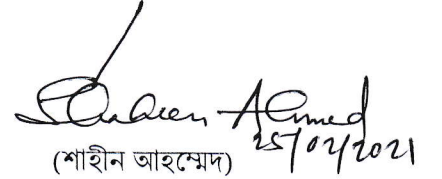 Shaheen Ahmed
25/02/2021
(শাহীন আহম্মেদ)